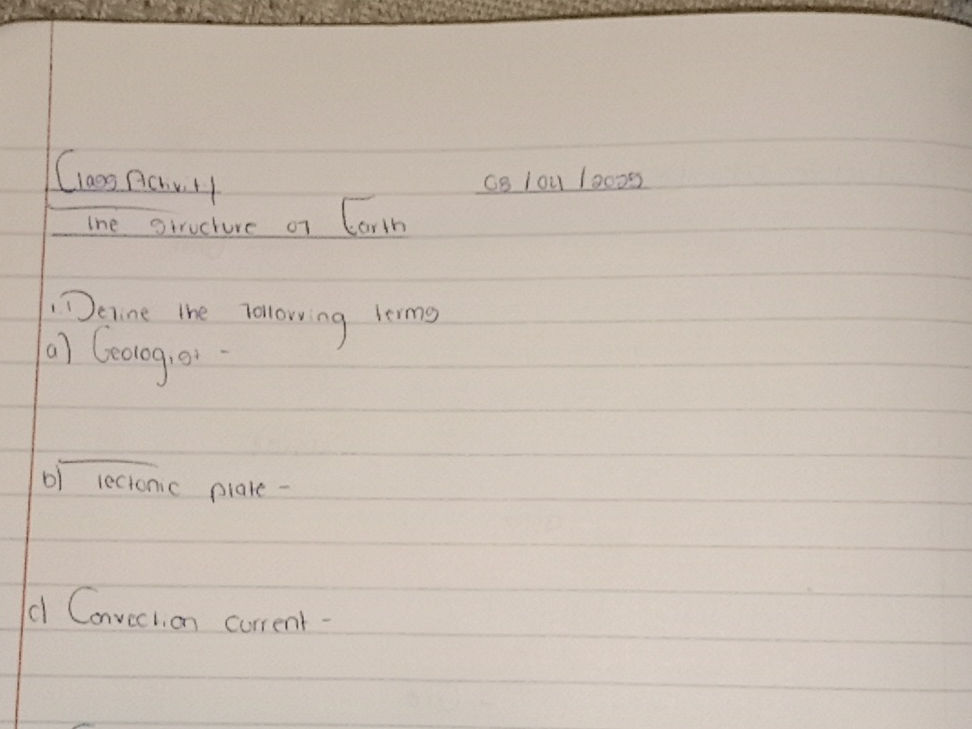 Class Activity 08/04/2025
The structure of Earth
1.) Define the following terms
a) Geologist -
b) Tectonic plate -
c) Convection current -